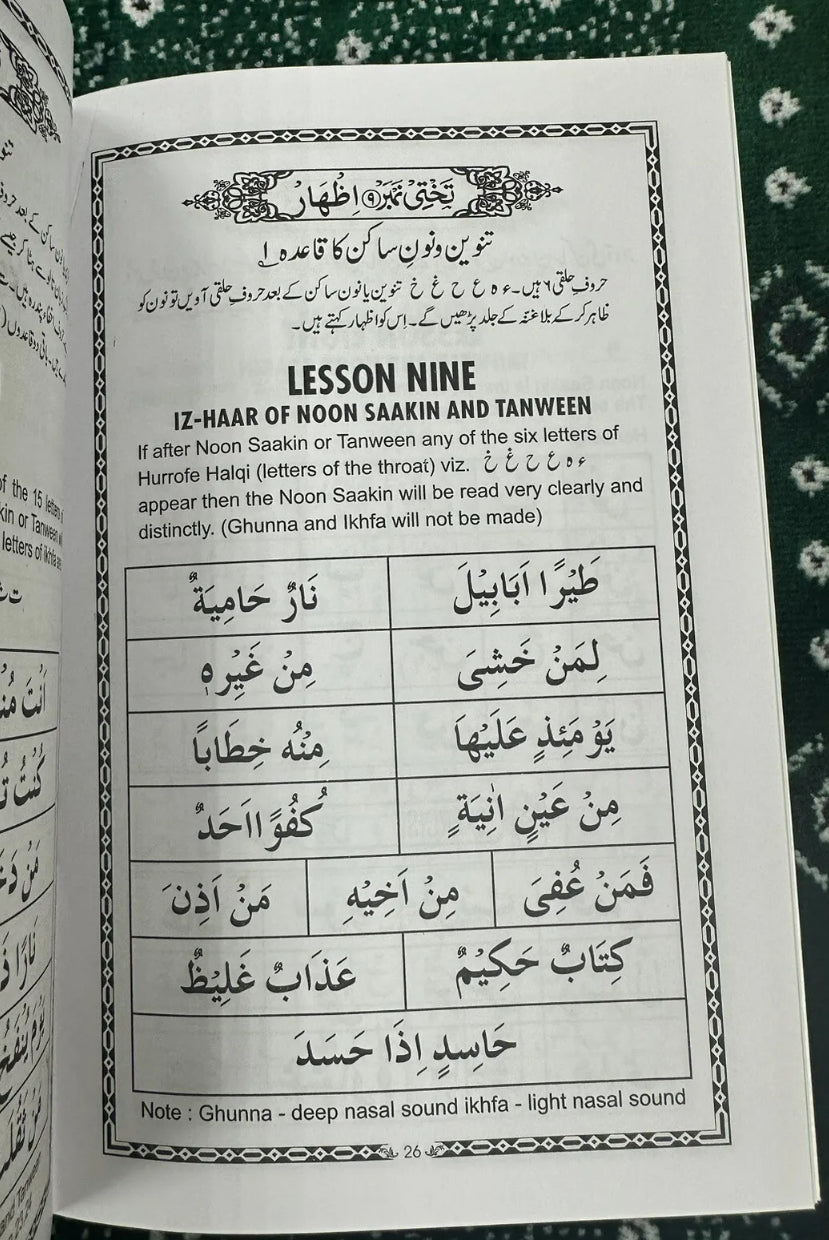 تختی نمبر ۹ اِظْهَارْ
تنوین و نونِ ساکن کا قاعدہ ۱
حروفِ حلقی ۶ ہیں۔ ء ہ ع ح غ خ تنوین یا نون ساکن کے بعد حروفِ حلقی آویں تو نون کو
ظاہر کرکے بلا غنّہ کے جلد پڑھیں گے۔ اِس کو اظہار کہتے ہیں۔
LESSON NINE
IZ-HAAR OF NOON SAAKIN AND TANWEEN
If after Noon Saakin or Tanween any of the six letters of
Hurrofe Halqi (letters of the throat) viz. ء ہ ع ح غ خ
appear then the Noon Saakin will be read very clearly and
distinctly. (Ghunna and Ikhfa will not be made)
طَيْرًا اَبَابِيْلَ نَارٌ حَامِيَةٌ
لِمَنْ خَشِىَ مِنْ غَيْرِهٖ
يَوْمَئِذٍ عَلَيْهَا مِنْهُ خِطَابًا
مِنْ عَيْنٍ اٰنِيَةٍ كُفُوًا اَحَدٌ
فَمَنْ عُفِىَ مِنْ اَخِيْهِ مَنْ اَذِنَ
كِتَابٌ حَكِيْمٌ عَذَابٌ غَلِيْظٌ
حَاسِدٍ اِذَا حَسَدَ
Note : Ghunna - deep nasal sound ikhfa - light nasal sound
26